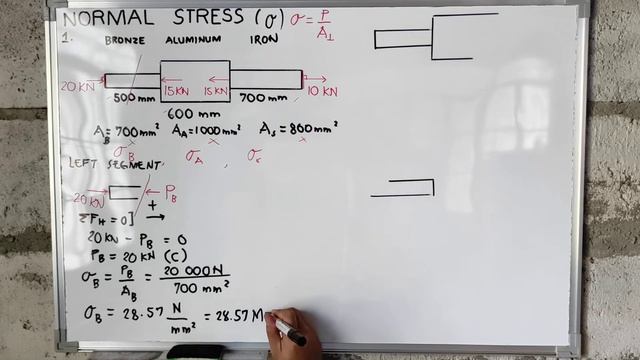 NORMAL STRESS (σ) σ = P / A⊥
1. BRONZE ALUMINUM IRON
20 KN 15 KN 15 KN 10 KN
500 mm 700 mm
600 mm
A_B = 700 mm² A_A = 1000 mm² A_S = 800 mm²
σ_B σ_A , σ_S
LEFT SEGMENT,
20 KN P_B
ΣF_H = 0] +
20 KN - P_B = 0
P_B = 20 KN (C)
σ_B = P_B / A_B = 20 000 N / 700 mm²
σ_B = 28.57 N / mm² = 28.57 M